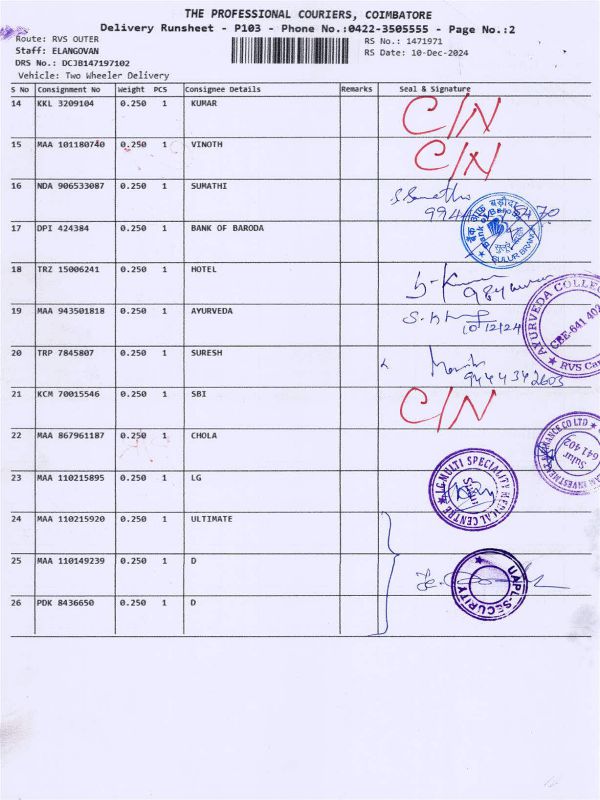 THE PROFESSIONAL COURIERS, COIMBATORE
Delivery Runsheet - P103 - Phone No.:0422-3505555 - Page No.:2
Route: RVS OUTER
RS No.: 1471971
Staff: ELANGOVAN
RS Date: 10-Dec-2024
DRS No.: DCJB147197102
Vehicle: Two Wheeler Delivery
S No Consignment No Weight PCS Consignee Details Remarks Seal & Signature
14 KKL 3209104 0.250 1 KUMAR C/N
15 MAA 101180740 0.250 1 VINOTH C/N
16 NDA 906533087 0.250 1 SUMATHI
17 DPI 424384 0.250 1 BANK OF BARODA
Bank of Baroda
SULUR BRANCH
18 TRZ 15006241 0.250 1 HOTEL
19 MAA 943501818 0.250 1 AYURVEDA 10/12/24
AYURVEDA COLLE
CBE-641 402
RVS Ca
20 TRP 7845807 0.250 1 SURESH
9444342603
21 KCM 70015546 0.250 1 SBI C/N
22 MAA 867961187 0.250 1 CHOLA
Sulur
641 402
23 MAA 110215895 0.250 1 LG
LG MULTI SPECIALITY DENTAL CENTRE
Sulur
24 MAA 110215920 0.250 1 ULTIMATE
25 MAA 110149239 0.250 1 D
UAPL-SECURITY
26 PDK 8436650 0.250 1 D